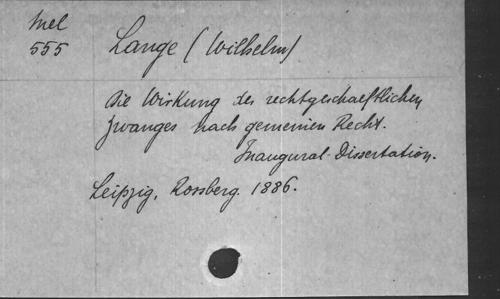 Mel
555
Lange (Wilhelm)
Die Wirkung des rechtgeschaeftlichen
Zwanges nach gemeinen Recht.
Inaugural-Dissertation.
Leipzig, Rossberg. 1886.